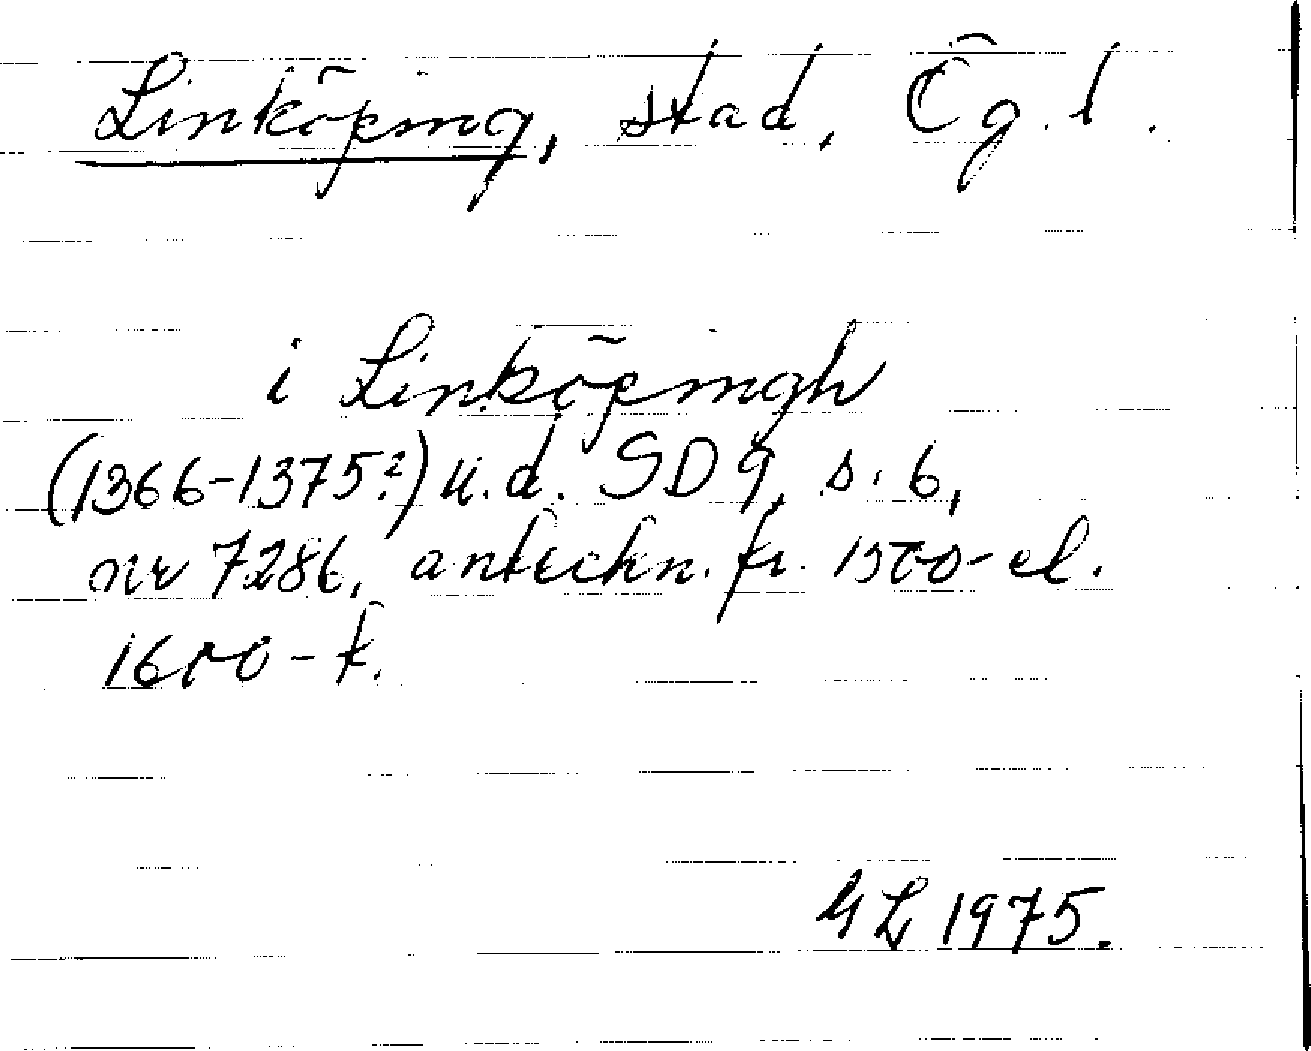 Linköping, stad, Ög. l.
i Linköpingh
(1366-1375?) u.d. SD 9, s. 6,
nr 7286, anteckn. fr. 1500- el.
1600-t.
GL 1975.